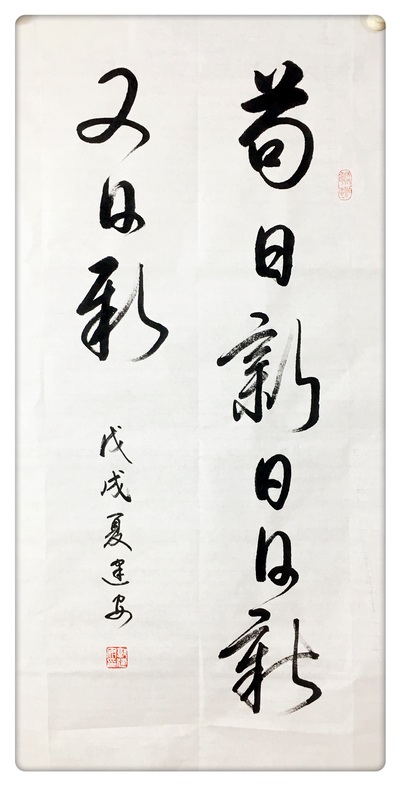 苟日新日日新
又日新
戊戌夏建安